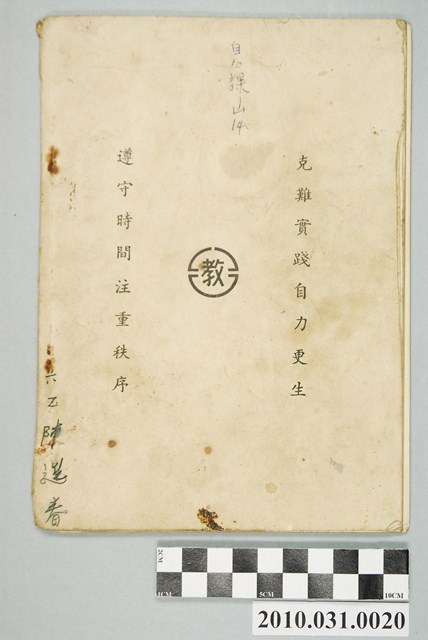 克難實踐自力更生
教
遵守時間注重秩序
六乙陳進春
2CM
1CM
5CM
10CM
2010.031.0020